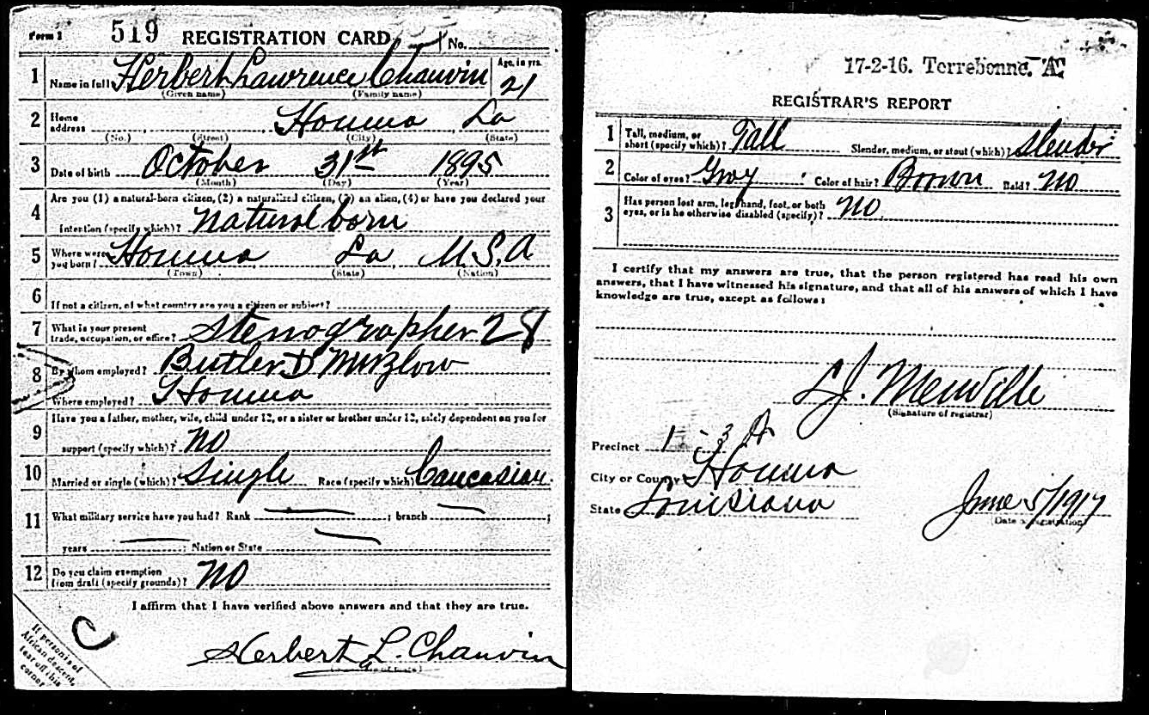 Form 1 519 REGISTRATION CARD No.
1 Name in full Herbert Lawrence Chauvin Age, in yrs. 21
(Given name) (Family name)
2 Home address Houma La
(No.) (Street) (City) (State)
3 Date of birth October 31st 1895
(Month) (Day) (Year)
4 Are you (1) a natural-born citizen, (2) a naturalized citizen, (3) an alien, (4) or have you declared your
intention (specify which)? Natural born
5 Where were you born? Houma La U.S.A
(Town) (State) (Nation)
6 If not a citizen, of what country are you a citizen or subject?
7 What is your present trade, occupation, or office? Stenographer 28
8 By whom employed? Butler D
Where employed? Houma
9 Have you a father, mother, wife, child under 12, or a sister or brother under 12, solely dependent on you for
support (specify which)? No
10 Married or single (which)? Single Race (specify which)? Caucasian
11 What military service have you had? Rank ; branch ;
years ; Nation or State
12 Do you claim exemption from draft (specify grounds)? No
I affirm that I have verified above answers and that they are true.
Herbert L. Chauvin
If person is of
African descent,
tear off this
corner
17-2-16. Terrebonne. A
REGISTRAR'S REPORT
1 Tall, medium, or short (specify which)? Tall Slender, medium, or stout (which)? Slender
2 Color of eyes? Gray Color of hair? Brown Bald? No
3 Has person lost arm, leg, hand, foot, or both
eyes, or is he otherwise disabled (specify)? No
I certify that my answers are true, that the person registered has read his own
answers, that I have witnessed his signature, and that all of his answers of which I have
knowledge are true, except as follows:
J. Menville
(Signature of registrar)
Precinct 1 - 3
City or County Houma
State Louisiana
June 5/1917
(Date of registration)